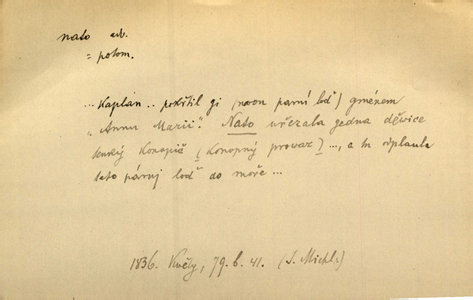 nato adv.
= potom.
... Kaplan .. pokřtil gi (novou parní loď) gménem
„Annu Marii“. Nato uřezala gedna děwice
tenký Konopič (Konopný prowaz) ..., a tu odplaula
tato párnj loď do moře ...
1836. Kwěty, 79. b. 41. (J. Michl.)